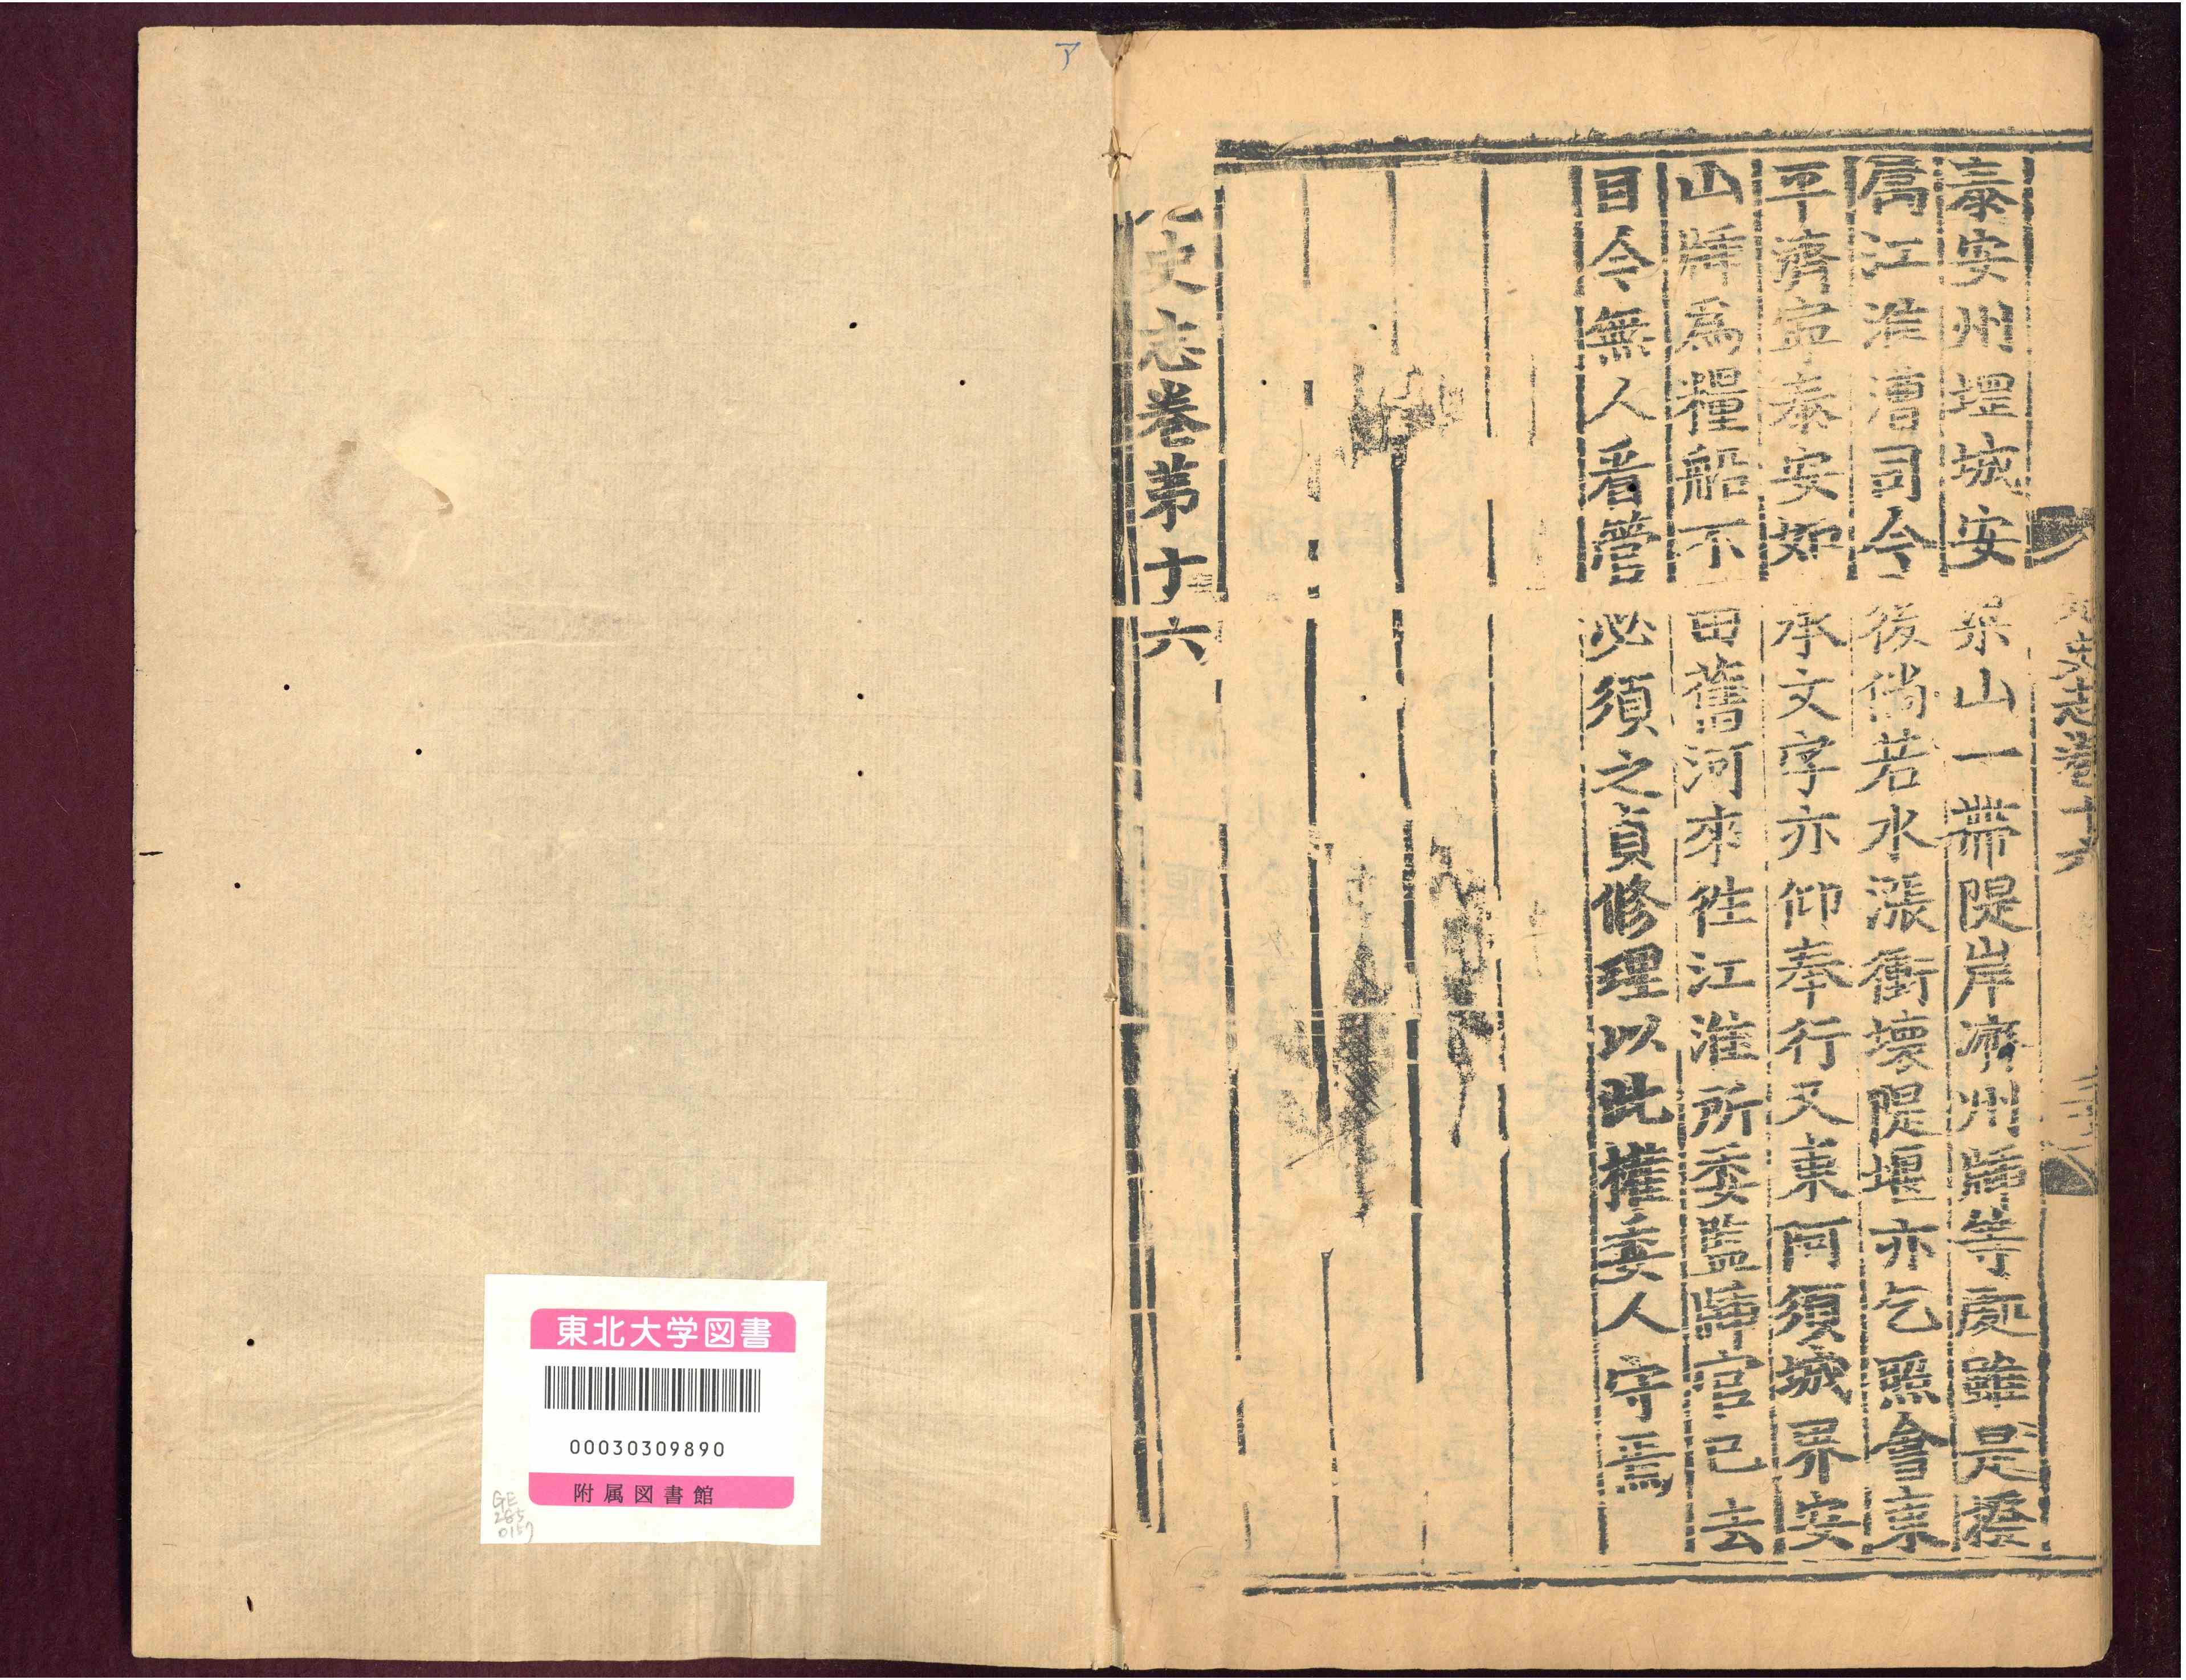 元史志卷十六
泰安州堽城安梁山一帶隄岸濟州牐等處雖是撥
屬江淮漕司今後倘若水漲衝壞隄堰亦乞照會東
平濟寧泰安如承文字亦仰奉行又東阿須城界安
山牐爲糧船不由舊河來徃江淮所委監牐官已去
目今無人看管必須之貞修理以此權委人守焉
史志卷第十六
ア
東北大学図書
00030309890
附属図書館
GE
285
0157